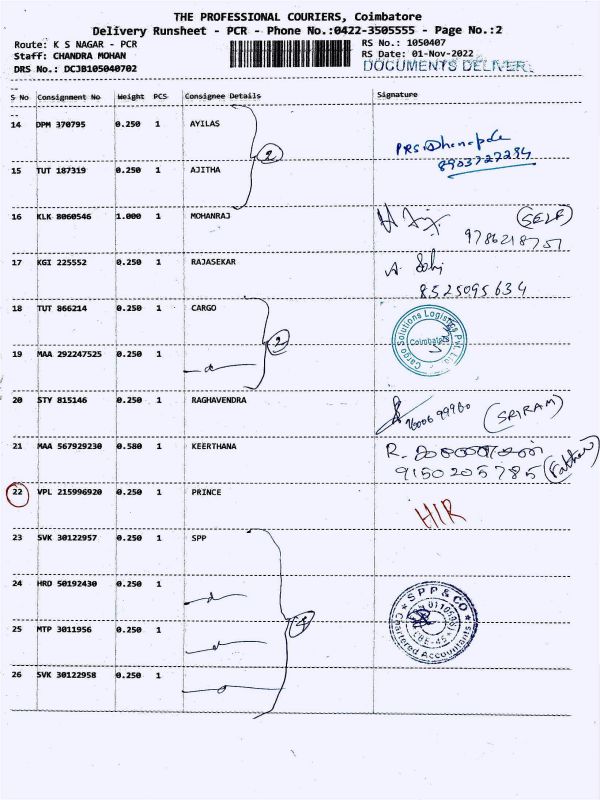 THE PROFESSIONAL COURIERS, Coimbatore
Delivery Runsheet - PCR - Phone No.:0422-3505555 - Page No.:2
Route: K S NAGAR - PCR
RS No.: 1050407
Staff: CHANDRA MOHAN
RS Date: 01-Nov-2022
DRS No.: DCJB105040702
DOCUMENTS DELIVER
S No Consignment No Weight PCS Consignee Details Signature
14 DPM 370795 0.250 1 AYILAS
8903727284
2
15 TUT 187319 0.250 1 AJITHA
16 KLK 8060546 1.000 1 MOHANRAJ (SELF)
9786218751
17 KGI 225552 0.250 1 RAJASEKAR
8525095634
18 TUT 866214 0.250 1 CARGO
Cargo Solutions Logistics Pvt. Ltd.
Coimbatore
2
19 MAA 292247525 0.250 1
20 STY 815146 0.250 1 RAGHAVENDRA (SRIRAM)
21 MAA 567929230 0.580 1 KEERTHANA R.
9150205785 (Father)
22 VPL 215996920 0.250 1 PRINCE HIR
23 SVK 30122957 0.250 1 SPP
24 HRD 50192430 0.250 1
SPP & CO
Chartered Accountants
4
25 MTP 3011956 0.250 1
26 SVK 30122958 0.250 1